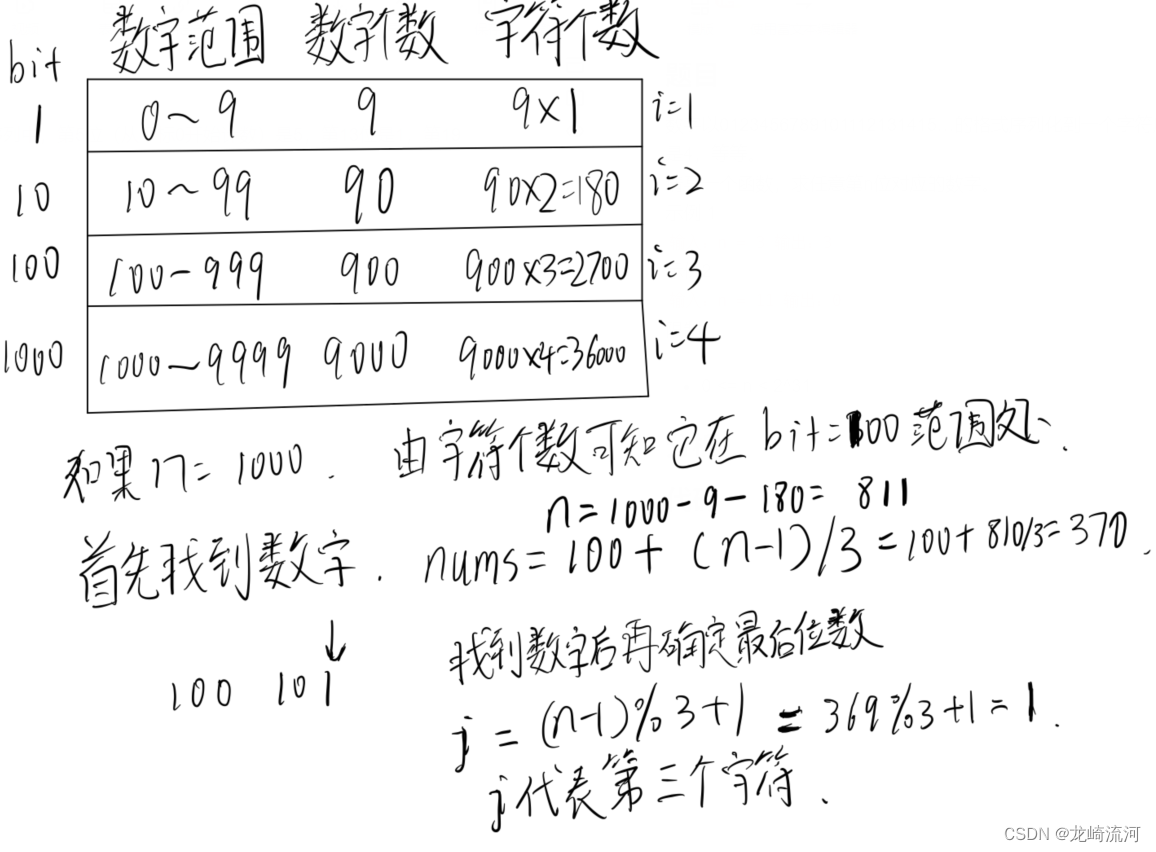 bit 数字范围 数字个数 字符个数
1 0~9 9 9×1 i=1
10 10~99 90 90×2=180 i=2
100 100-999 900 900×3=2700 i=3
1000 1000~9999 9000 9000×4=36000 i=4
如果n=1000. 由字符个数可知它在bit=100范围处.
n=1000-9-180= 811
首先找到数字. nums=100+(n-1)/3=100+810/3=370.
↓
100 101
找到数字后再确定最后位数
j=(n-1)%3+1=369%3+1=1.
j代表第三个字符.
CSDN @龙崎流河